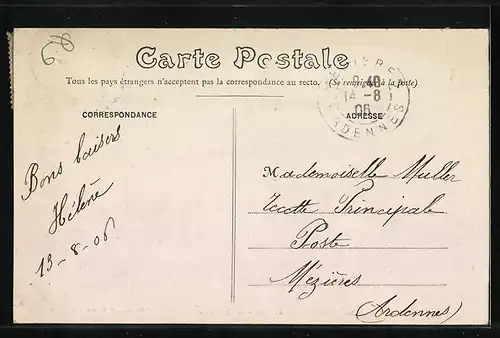 68
Carte Postale
Tous les pays étrangers n'acceptent pas la correspondance au recto. (Se renseigner à la poste)
CORRESPONDANCE
ADRESSE
8-40
14-8
06
ARDENNES
Bons baisers
Hélène
13-8-06
Mademoiselle Muller
Principale
Poste
Mézières
(Ardennes)